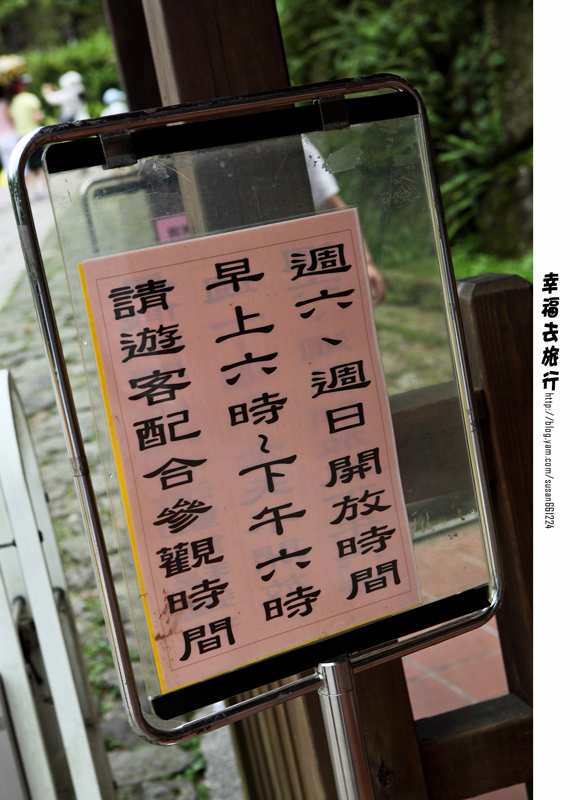 週六、週日開放時間
早上六時~下午六時
請遊客配合參觀時間
幸福去旅行
http://blog.yam.com/susan661224